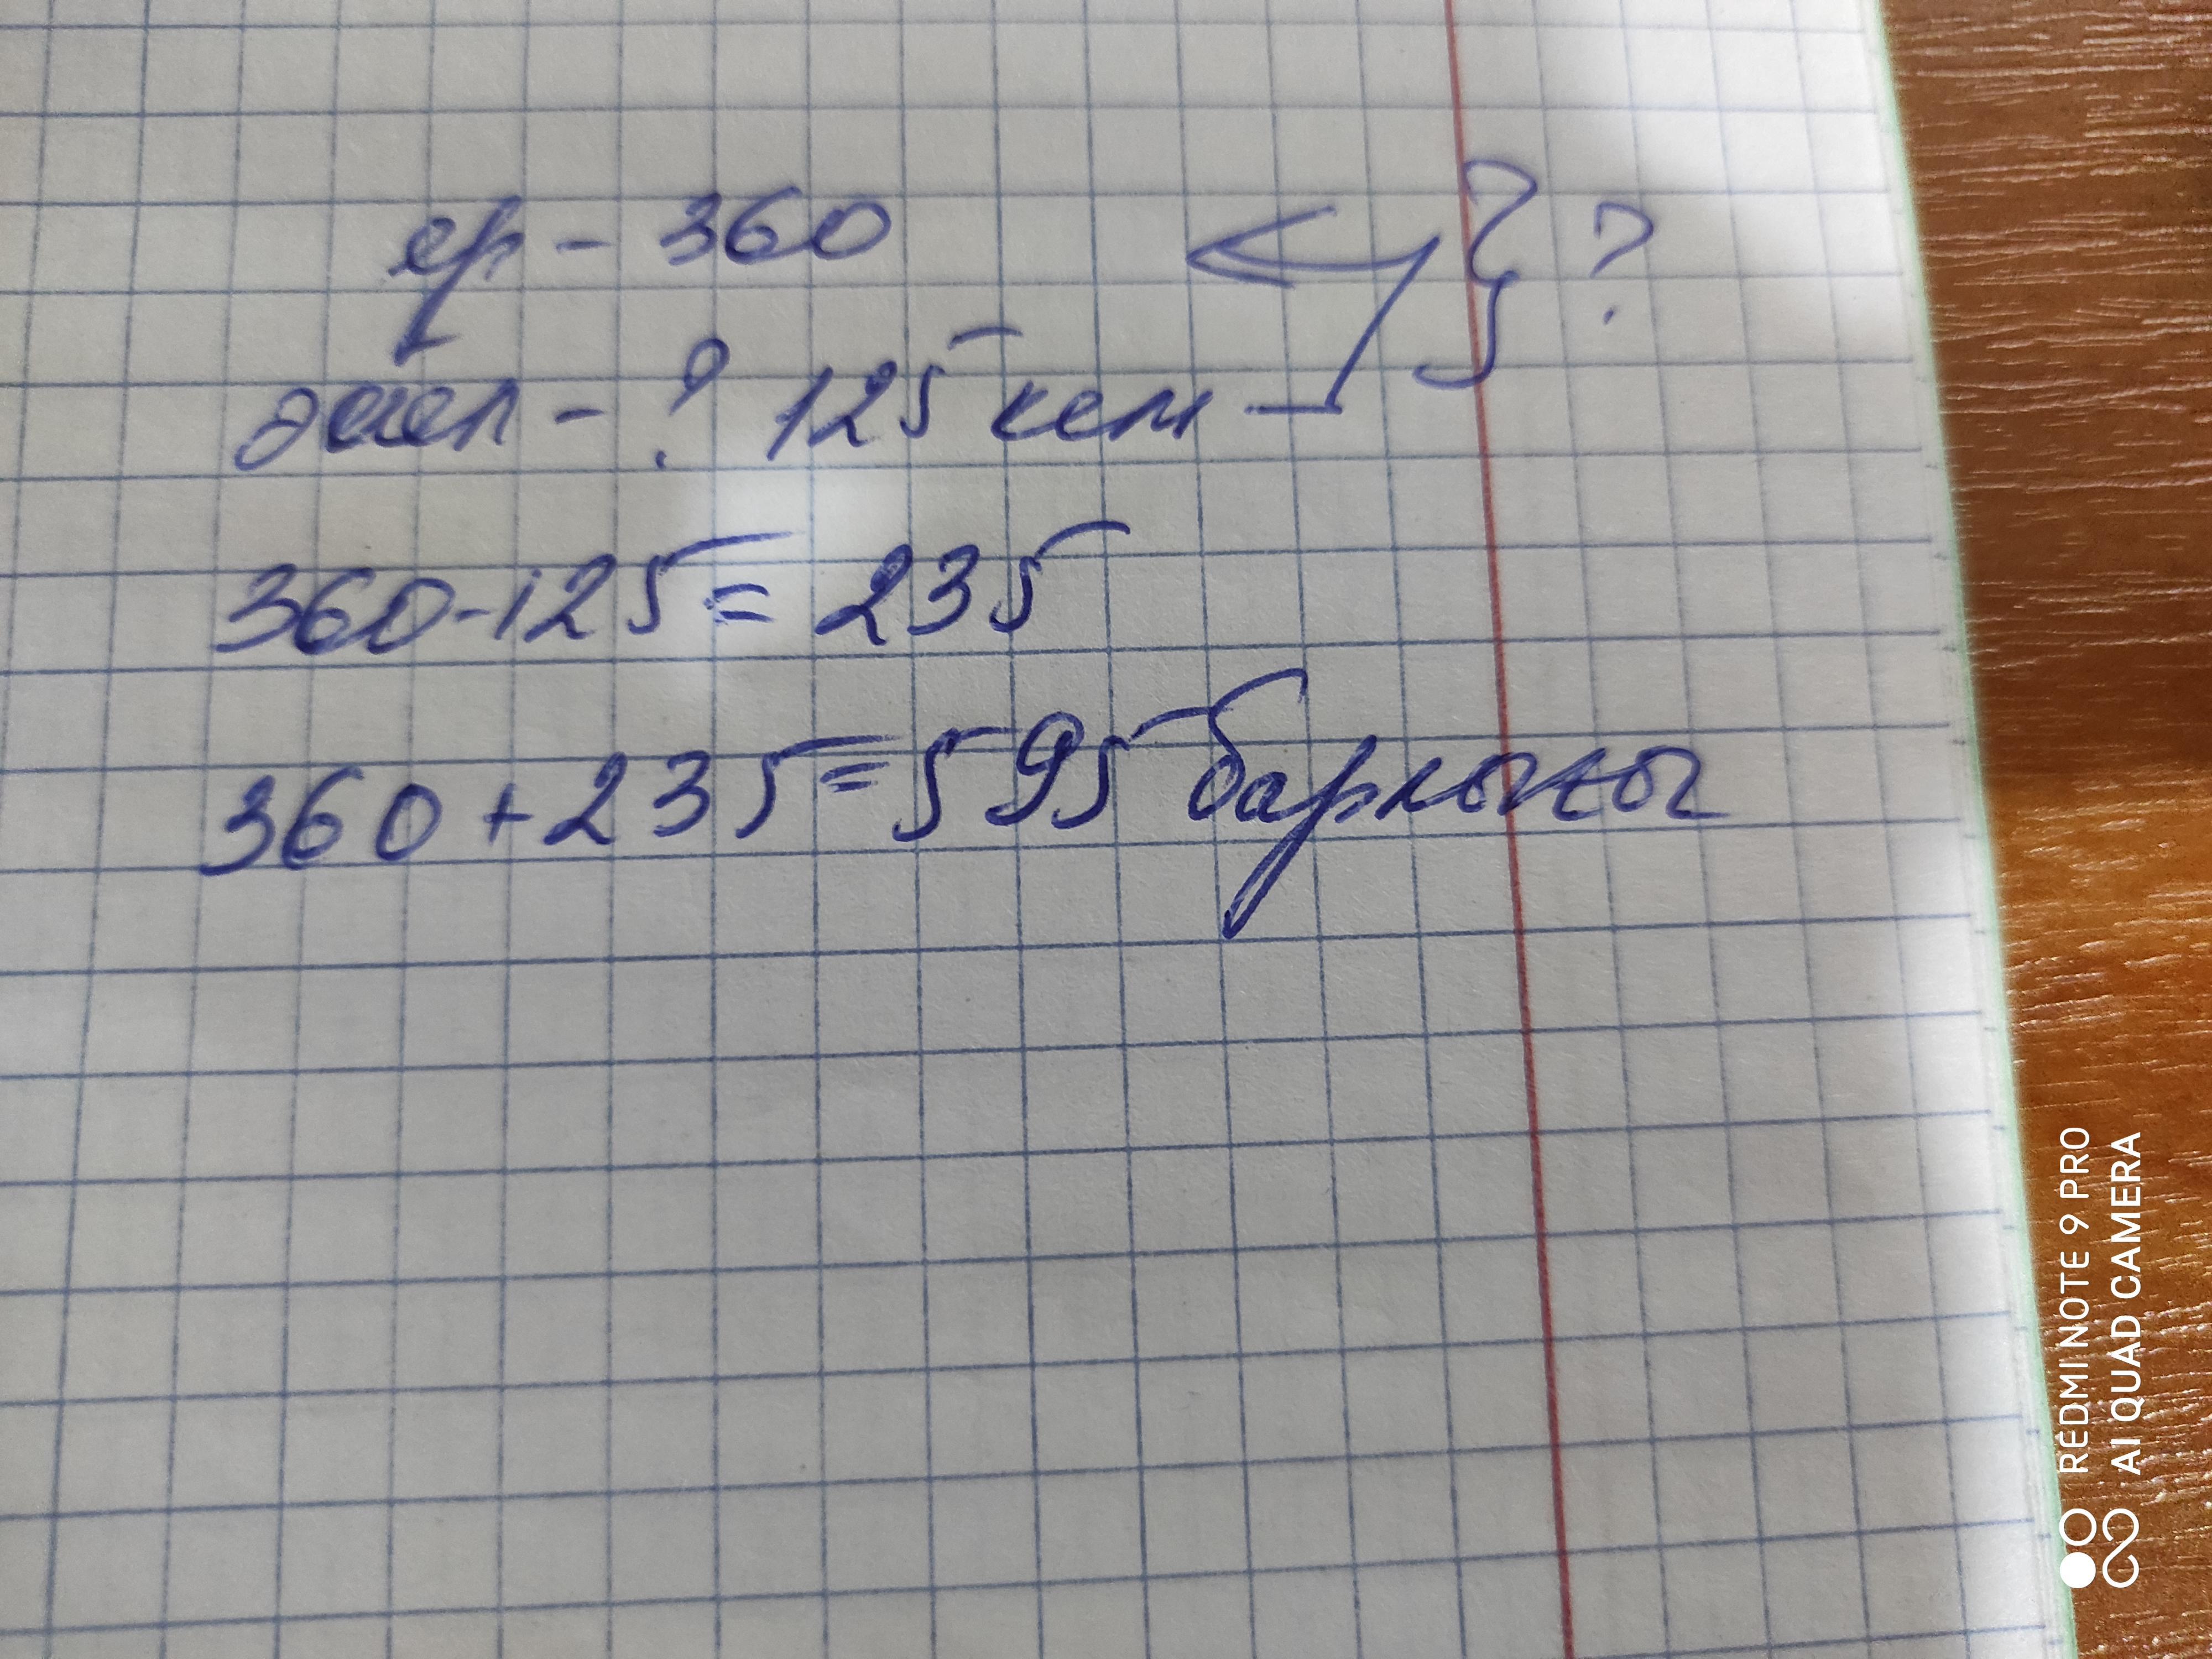 ер - 360 } ?
әйел - ? 125 кем
360-125=235
360+235=595 барлығы
REDMI NOTE 9 PRO
AI QUAD CAMERA